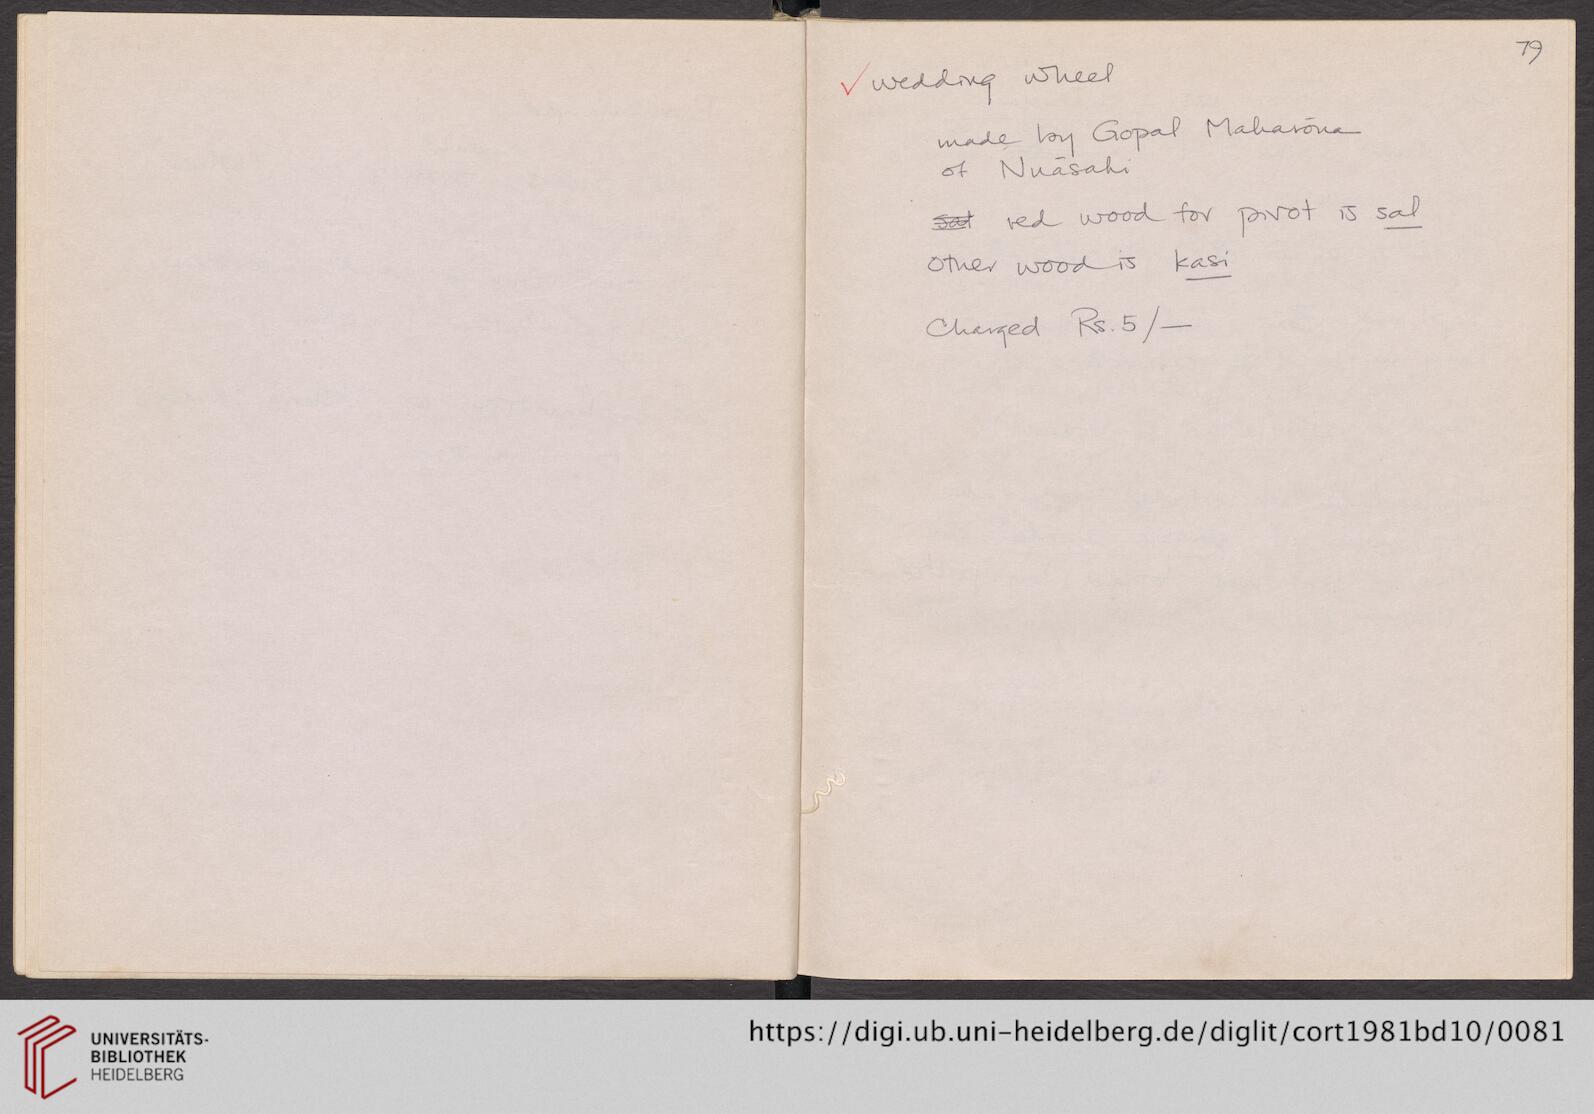 79
✓ wedding wheel
made by Gopal Maharōna
of Nuāsahi
sal red wood for pivot is sal
Other wood is kasi
Charged Rs. 5/—
UNIVERSITÄTS-
BIBLIOTHEK
HEIDELBERG
https://digi.ub.uni-heidelberg.de/diglit/cort1981bd10/0081